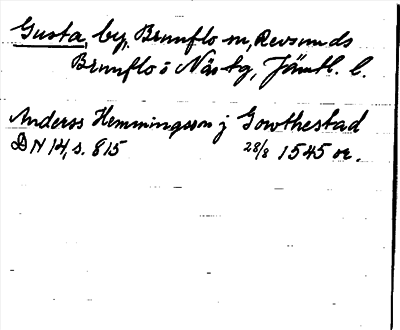 Gusta, by, Brunflo sn, Revsunds
Brunflo o Näs tg, Jämtl. l.
Anderss Hemmingsson j Gowthestad
DN 14, s. 815 28/8 1545 or.